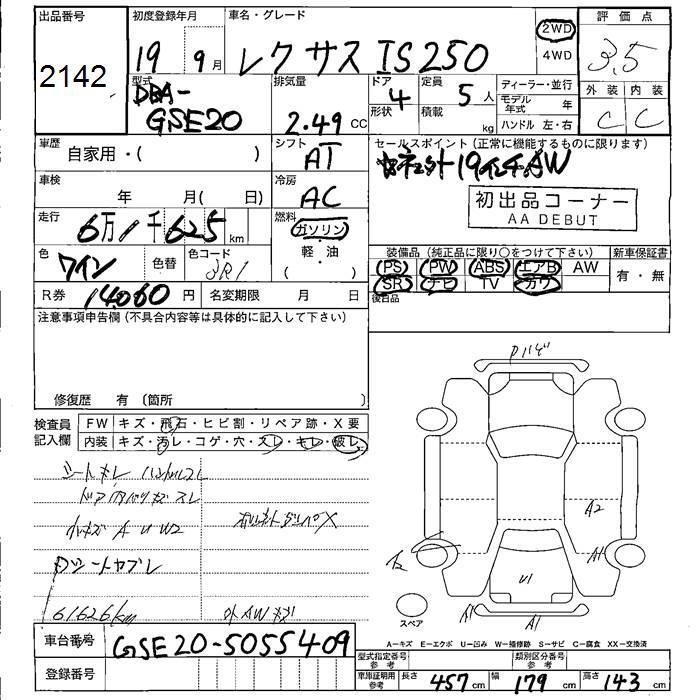 出品番号
2142
初度登録年月
19 9月
車名・グレード
レクサス IS250
2WD
4WD
評価点
3.5
外装 内装
C C
型式
DBA-
GSE20
排気量
2.49 CC
ドア
4
形状
定員
5人
積載
kg
ディーラー・並行
モデル年式 年
ハンドル 左・右
車歴
自家用・( )
シフト
AT
セールスポイント(正常に機能するものに限ります)
19インチAW
初出品コーナー
AA DEBUT
車検
年 月( 日)
冷房
AC
走行
6万1千625 km
燃料
ガソリン
軽・油
( )
色
ワイン
色替
色コード
3R1
装備品(純正品に限り○をつけて下さい)
新車保証書
PS PW ABS エアB AW
SR ナビ TV カワ
有・無
後日品
R券 14060 円
名変期限 月 日
注意事項申告欄(不具合内容等は具体的に記入して下さい)
修復歴 有(箇所 )
検査員
記入欄
FW キズ・飛石・ヒビ割・リペア跡・X要
内装 キズ・汚レ・コゲ・穴・スレ・キレ・破レ
ドア内バリキズスレ
小キズ A U W2
61626km
外AWキズ
A2
A1
U1
A1
A1
スペア
A-キズ E-エクボ U-凹み W-補修跡 S-サビ C-腐食 XX-交換済
車台番号
GSE20-5055409
登録番号
型式指定番号
参考
類別区分番号
参考
車庫証明用
参考
長さ 457 cm 幅 179 cm 高さ 143 cm